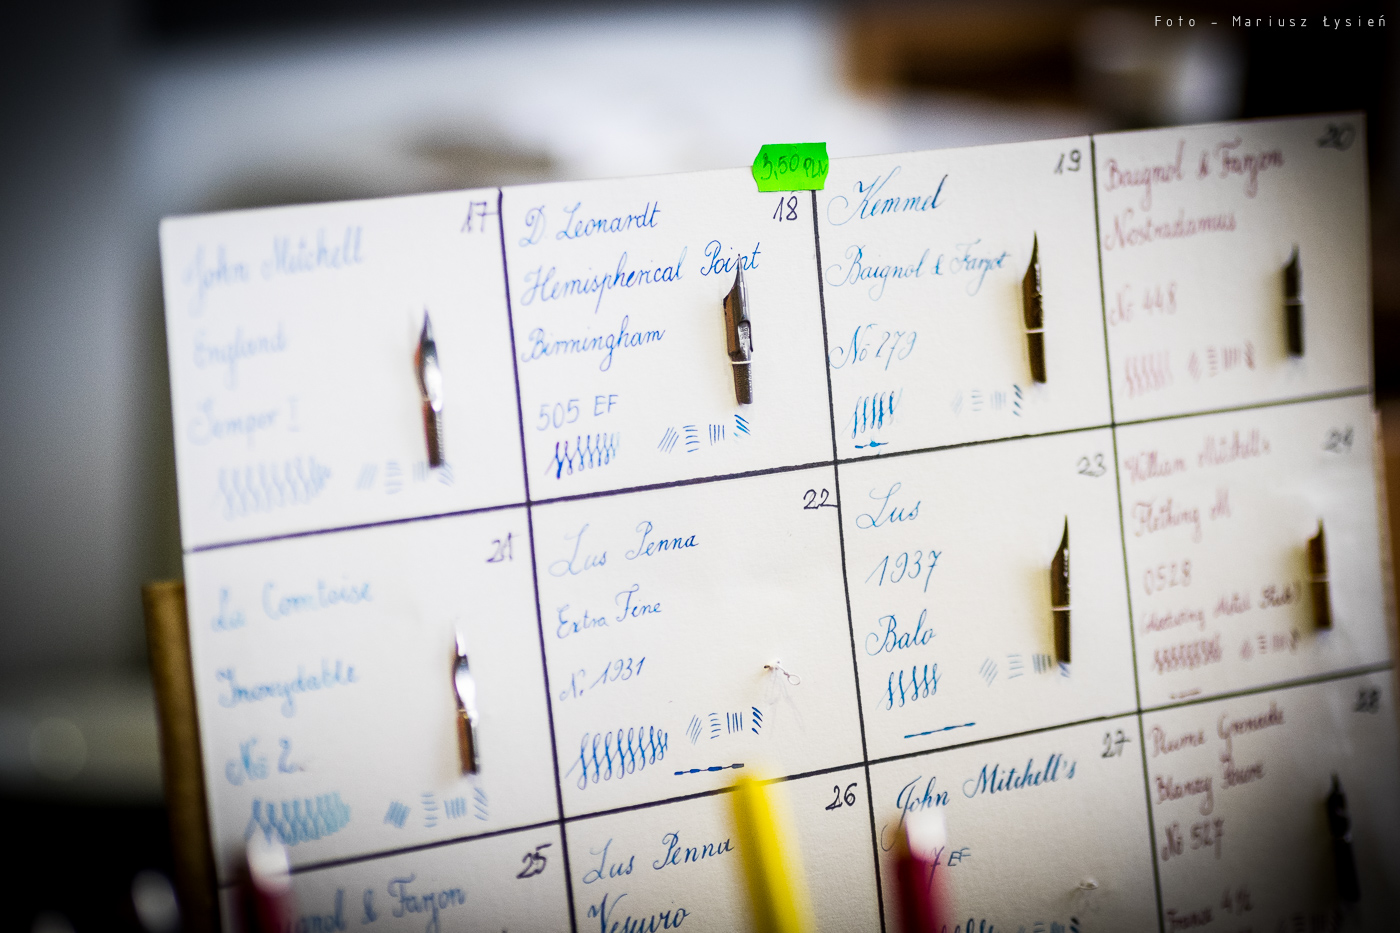 Foto - Mariusz Łysień
3,50 PLN
17
John Mitchell
England
Semper I
18
D Leonardt
Hemispherical Point
Birmingham
505 EF
19
Kemmel
Baignol & Farjot
No 279
20
Baignol & Farjon
Nostradamus
No 448
21
La Comtoise
Inoxydable
No 2.
22
Lus Penna
Extra Fine
N. 1931
23
Lus
1937
Balo
24
William Mitchell's
M
0528
25
& Farjon
26
Lus Penna
Vesuvio
27
John Mitchell's
EF
28
Plume Grenade
Blanzy
No 527